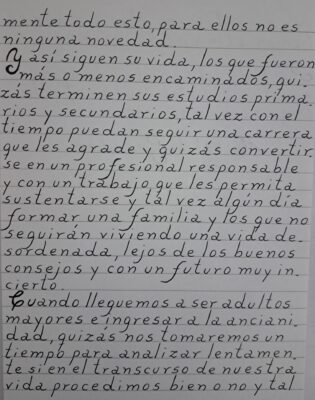 mente todo esto, para ellos no es
ninguna novedad.
Y así siguen su vida, los que fueron
más o menos encaminados, qui-
zás terminen sus estudios prima-
rios y secundarios, tal vez con el
tiempo puedan seguir una carrera
que les agrade y quizás convertir-
se en un profesional responsable
y con un trabajo que les permita
sustentarse y tal vez algún día
formar una familia y los que no
seguirán viviendo una vida de-
sordenada, lejos de los buenos
consejos y con un futuro muy in-
cierto.
Cuando lleguemos a ser adultos
mayores e ingresar a la anciani-
dad, quizás nos tomaremos un
tiempo para analizar lentamen-
te si en el transcurso de nuestra
vida procedimos bien o no y tal